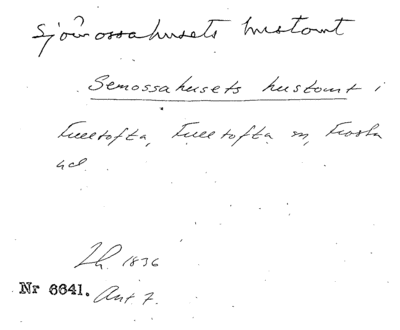 Sjömossahusets hustomt
Semossahusets hustomt i
Fulltofta, Fulltofta sn, Frosta
hd
Lh. 1836
Nr 6641. Ant 7.